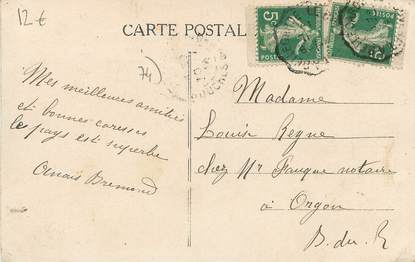 12 €
CARTE POSTAL
5c
POSTES
74
Mes meilleures amitiés
et bonnes caresses
le pays est superbe
Anaïs Bremond
Madame
Louise Reyne
chez Mr Fauque notaire
à Orgon
B. du R.